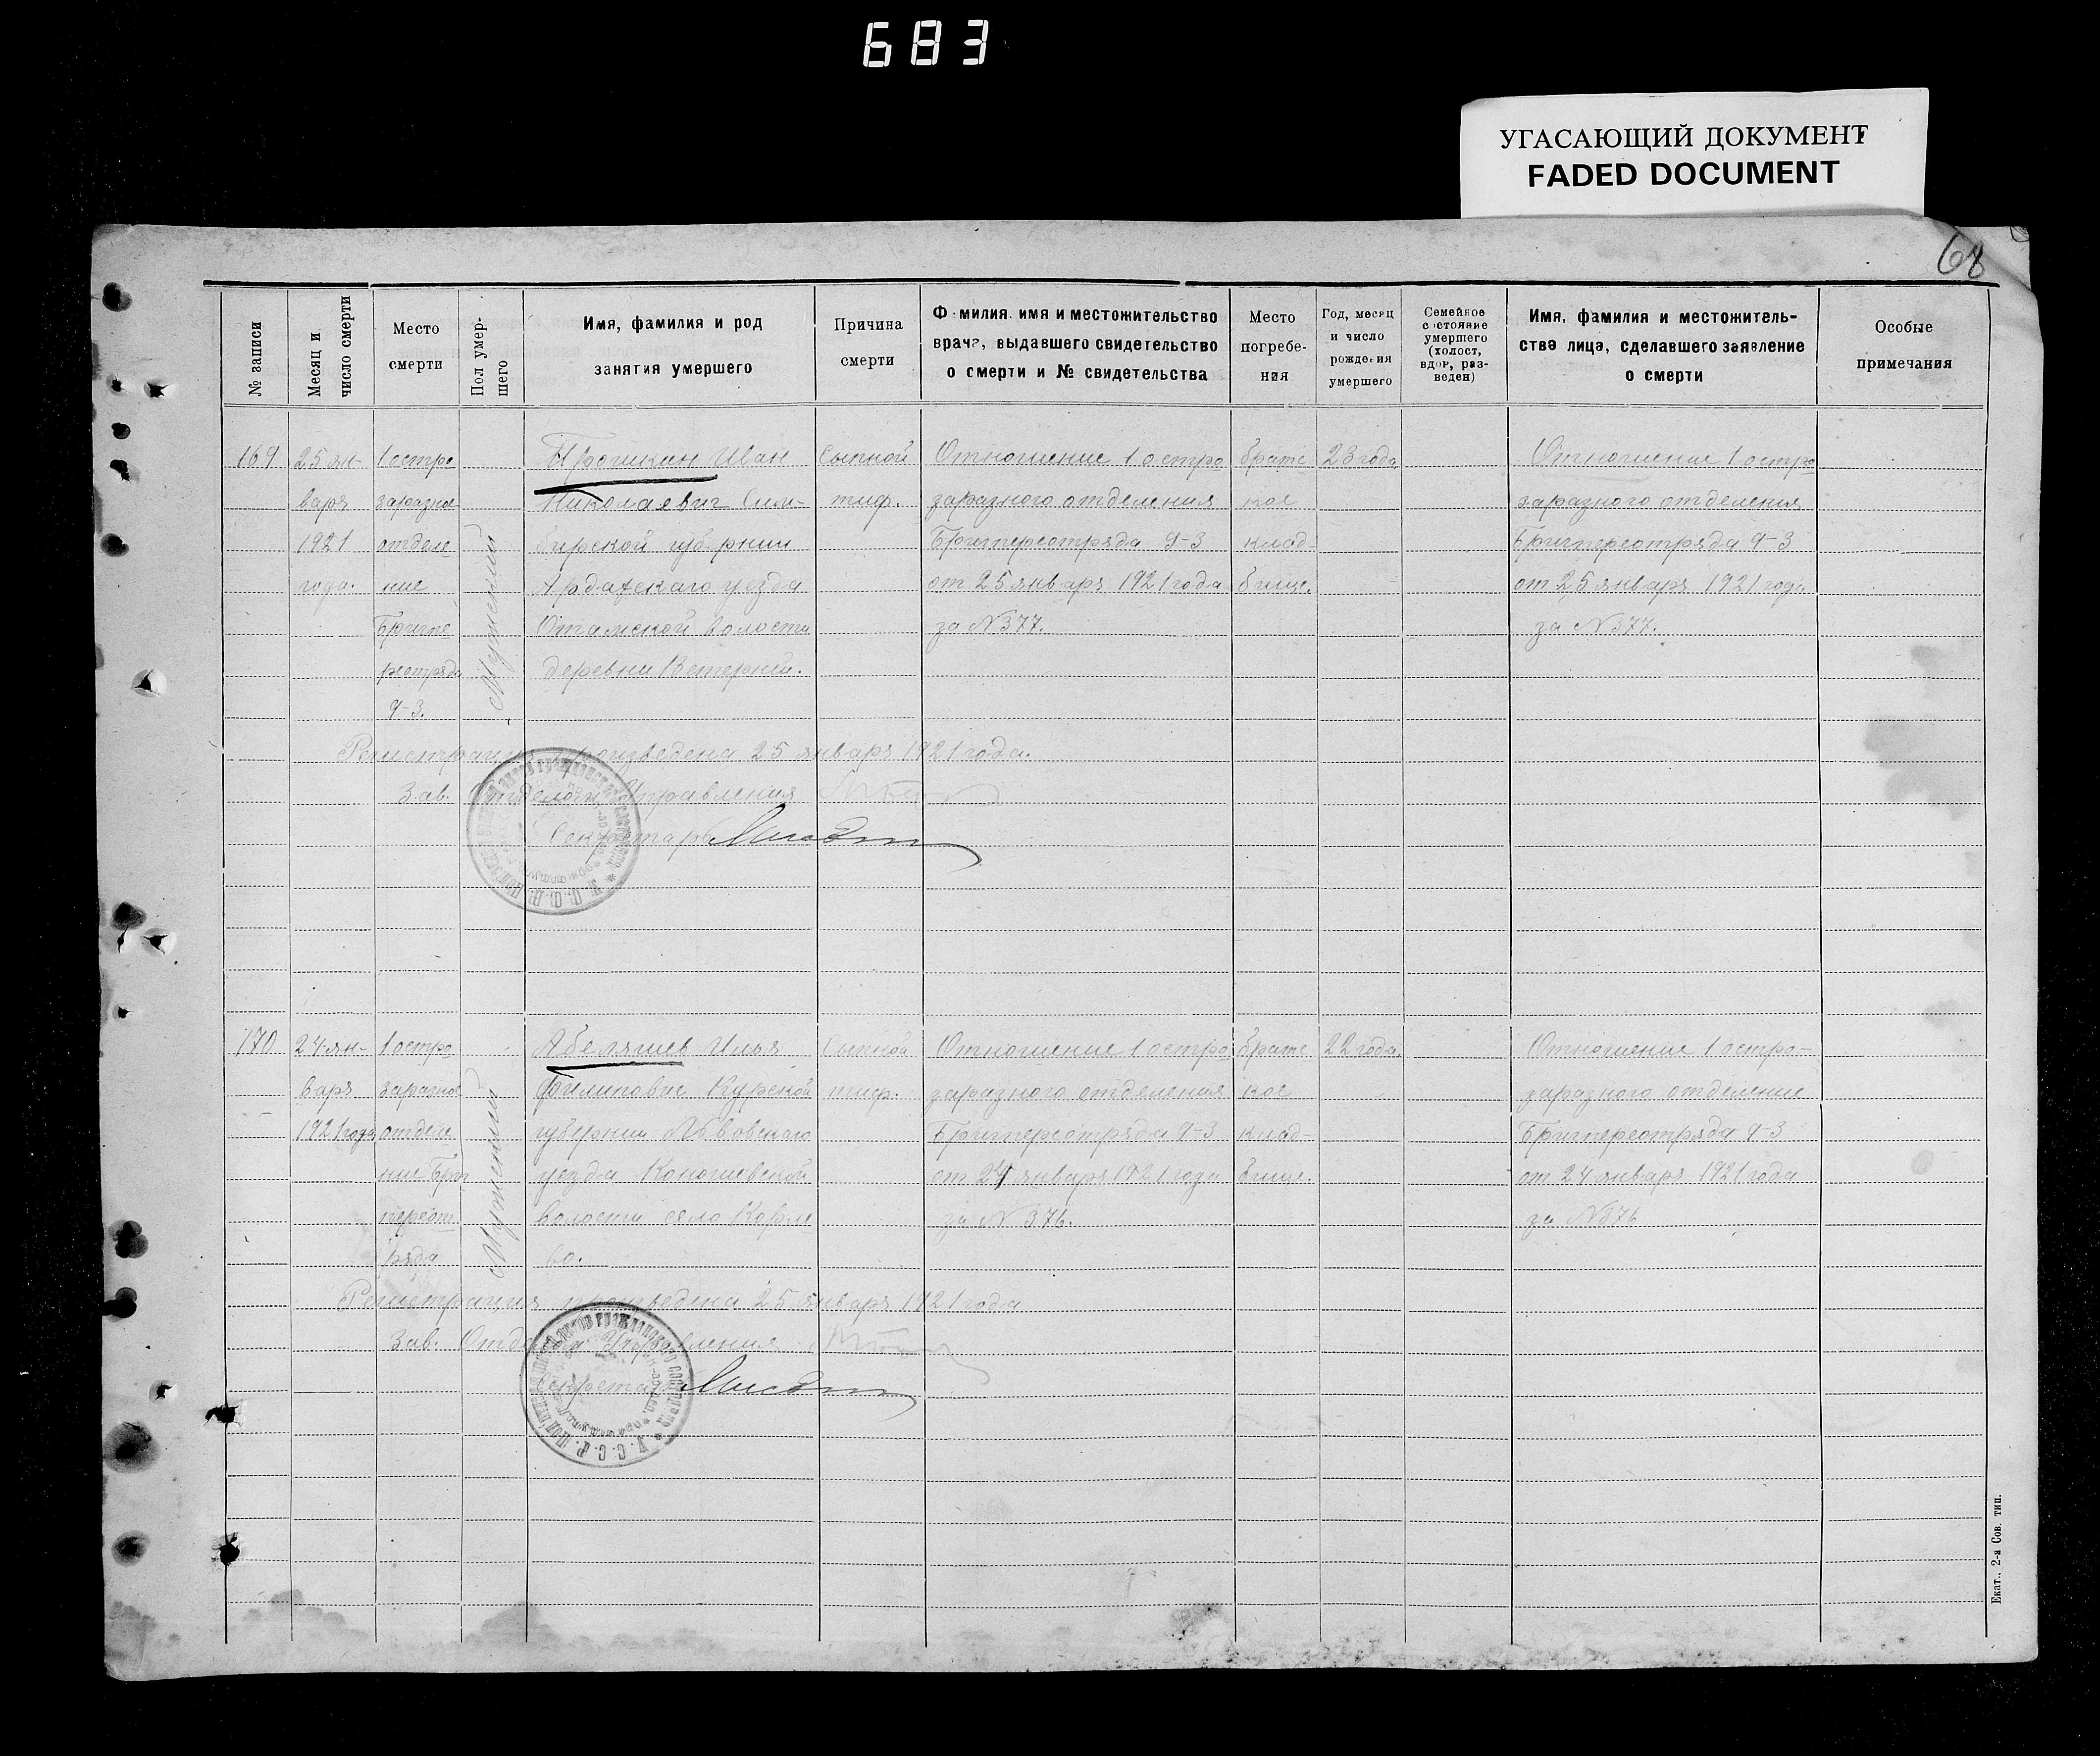 683
УГАСАЮЩИЙ ДОКУМЕНТ
FADED DOCUMENT
68
№ записи
Месяц и
число смерти
Место
смерти
Пол умер-
шего
Имя, фамилия и род
занятия умершего
Причина
смерти
Ф милия. имя и местожительство
врача, выдавшего свидетельство
о смерти и № свидетельства
Место
погребе-
ния
Год, месяц
и число
рождения
умершего
Семейное
состояние
умершего
(холост,
вдов, раз-
веден)
Имя, фамилия и местожитель-
ства лица, сделавшего заявление
о смерти
Особые
примечания
169
25 ян-
варя
1921
года.
1 остро
заразное
отделе
ние
Бригпе
реотряда
9-3.
Мужской
Иван
Николаевич Сим-
бирской губернии
Ардатскаго уезда
волости
деревни
Сыпной
тиф.
Отношение 1 остро
заразного отделения
Бригпереотряда 9-3
от 25 января 1921 года
за № 377.
братс
кое
клад-
бище.
23 года
Отношение 1 остро
заразного отделения
Бригпереотряда 9-3
от 25 января 1921 года
за № 377.
Регистрация произведена 25 января 1921 года.
Зав. Отделом Управления
Секретарь
170
24 ян-
варя
1921 года
1 остро
заразное
отделе
ние Бриг
переот
ряда
Мужской
Абеляшев Илья
Филипович Курской
губернии Львовскаго
уезда
волости село
во.
Сыпной
тиф.
Отношение 1 остро
заразного отделения
Бригпереотряда 9-3
от 24 января 1921 года
за № 376.
братс
кое
клад-
бище.
22 года
Отношение 1 остро-
заразного отделение
Бригпереотряда 9-3
от 24 января 1921 года
за № 376
Регистрация произведена 25 января 1921 года
Зав. Отделом Управления
Секретарь
Екат., 2-а Сов. тип.